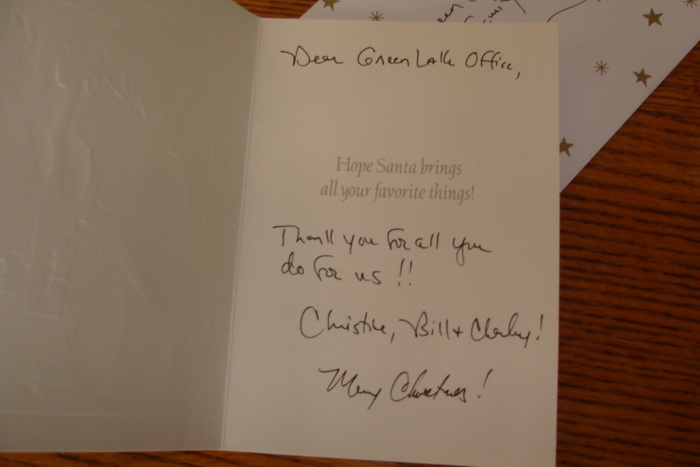 Dear Green Lake Office,
Hope Santa brings
all your favorite things!
Thank you for all you
do for us !!
Christine, Bill + Charley!
Merry Christmas!